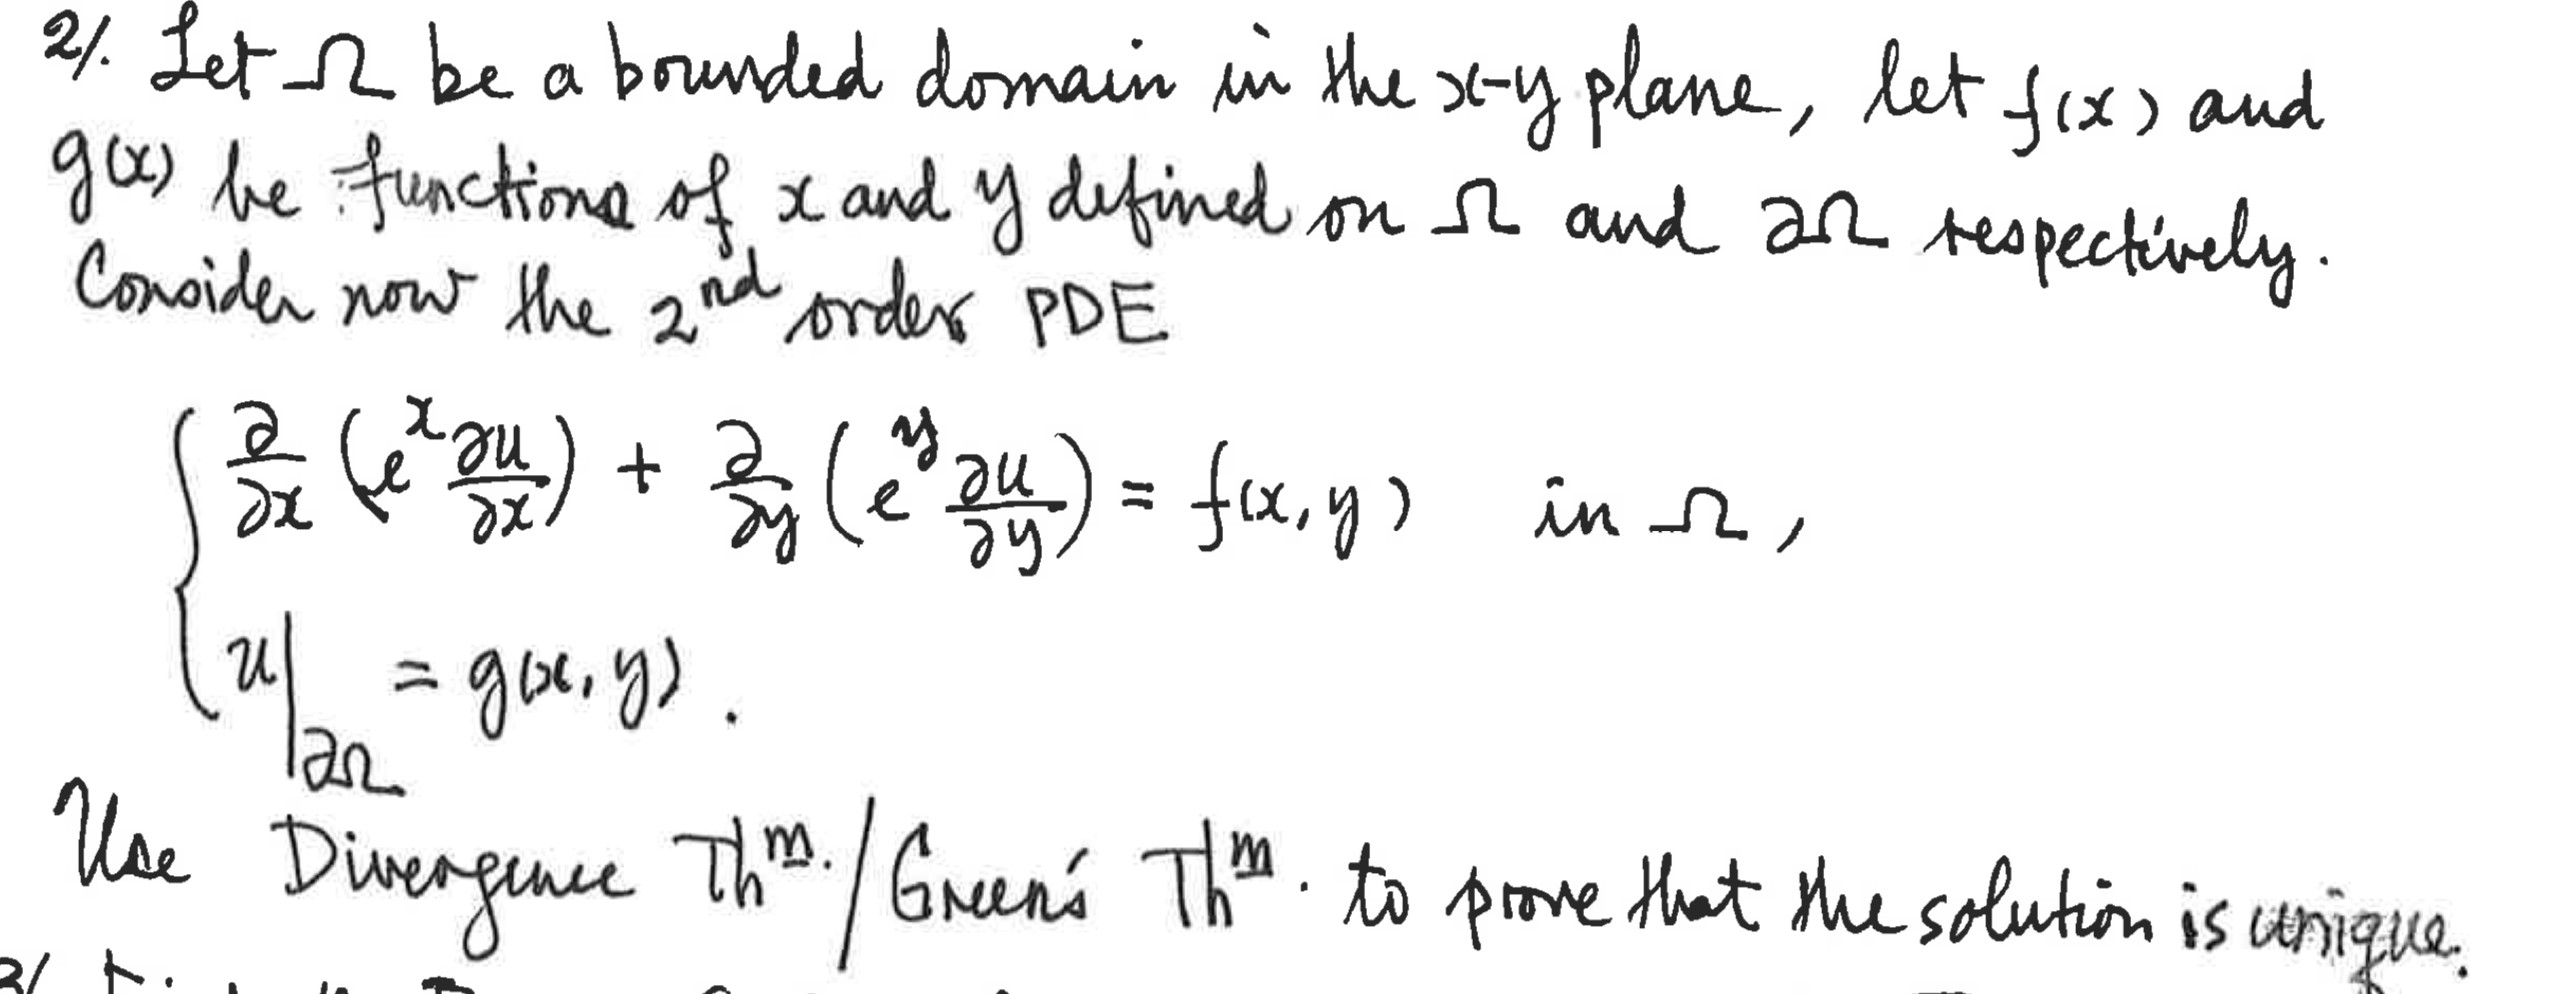 2/. Let Ω be a bounded domain in the x-y plane, let f(x) and
g(x) be functions of x and y defined on Ω and ∂Ω respectively.
Consider now the 2nd order PDE
∂/∂x (e^x ∂u/∂x) + ∂/∂y (e^y ∂u/∂y) = f(x, y) in Ω,
u|∂Ω = g(x, y).
Use Divergence Thm./Green's Thm. to prove that the solution is unique.
3/